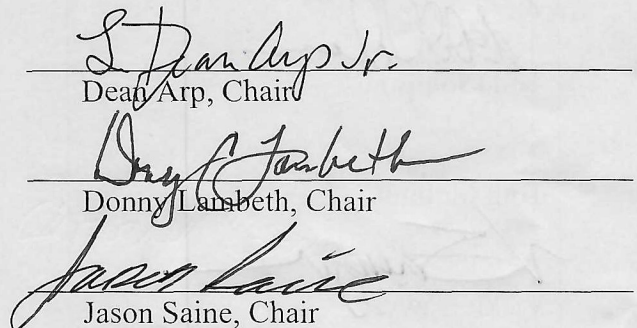 L. Dean Arp Jr.
Dean Arp, Chair
Donny C Lambeth
Donny Lambeth, Chair
Jason Saine
Jason Saine, Chair